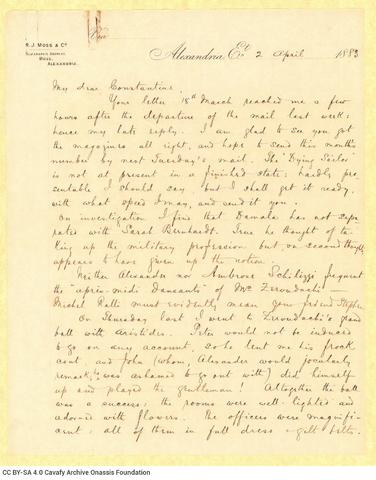 R. J. Moss & Co
Telegraphic Address,
Moss,
Alexandria.
Alexandria, Et. 2 April 1883
My dear Constantine,
Your letter 18th March reached me a few
hours after the departure of the mail last week;
hence my late reply. I am glad to see you got
the magazines all right, and hope to send this month's
number by next Tuesday's mail. The "Dying Sailor"
is not at present in a finished state; hardly pre-
sentable I should say, but I shall get it ready,
with what speed I may, and send it you.
On investigation I find that Damala has not sepa-
rated with Sarah Bernhardt. True he thought of ta-
king up the military profession but on second thoughts
appears to have given up the notion.
Neither Alexander nor Ambrose Schilizzi frequent
the "après-midi dansants" of Mrs Zervudachi –
Michel Ralli must evidently mean your friend
On Thursday last I went to Zervudachi's grand
ball with Aristides. Peter would not be induced
to go on any account, so he lent me his frock
coat, and John (whom, Alexander would jocularly
remark, was ashamed to go out with) did himself
up and played the gentleman! Altogether the ball
was a success: the rooms were well lighted and
adorned with flowers. The officers were magnifi-
cent: all of them in full dress & gilt belts.
CC BY-SA 4.0 Cavafy Archive Onassis Foundation